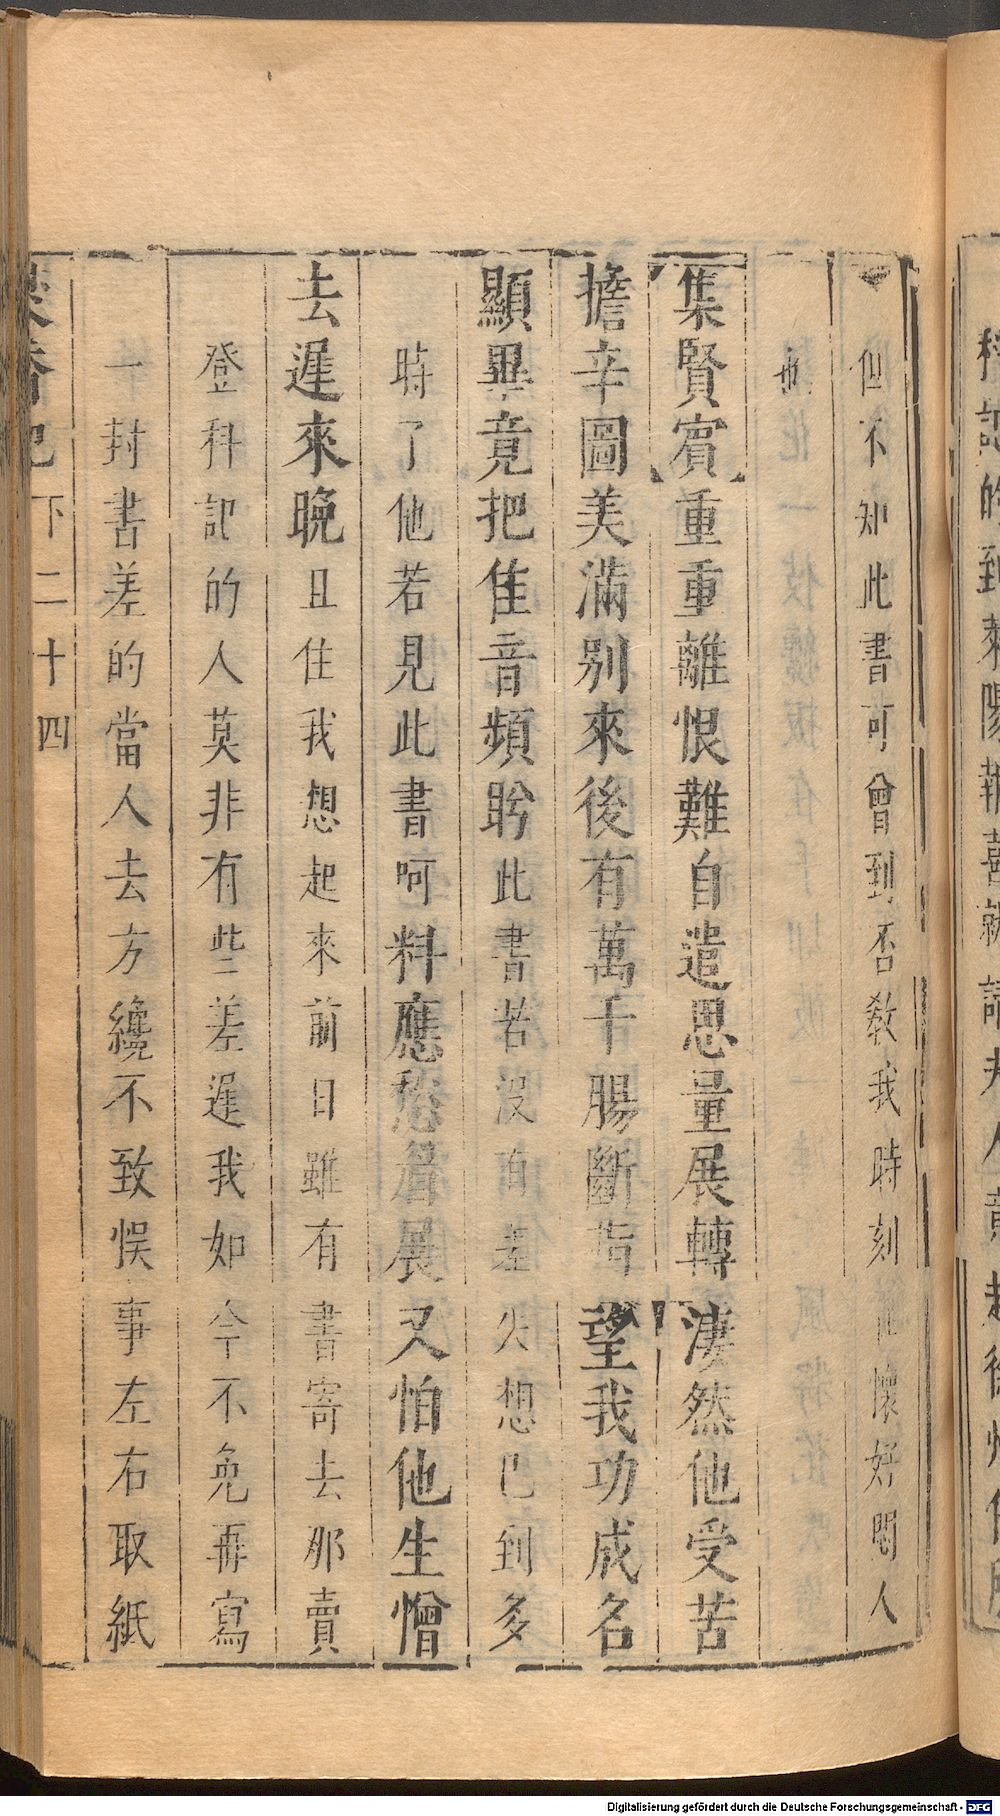 但不知此書可曾到否教我時刻懷好悶人
也
集賢賓重重離恨難自遣思量展轉淒然他受苦
擔辛圖美滿別來後有萬千腸斷望我功成名
顯畢竟把佳音頻盻此書若沒有差失想已到多
時了他若見此書呵料應愁眉展又怕他生憎
去遲來晚且住我想起來前日雖有書寄去那賣
登科記的人莫非有些差遲我如今不免再寫
一封書差的當人去方纔不致悞事左右取紙
懷香記 下二十四
Digitalisierung gefördert durch die Deutsche Forschungsgemeinschaft - DFG